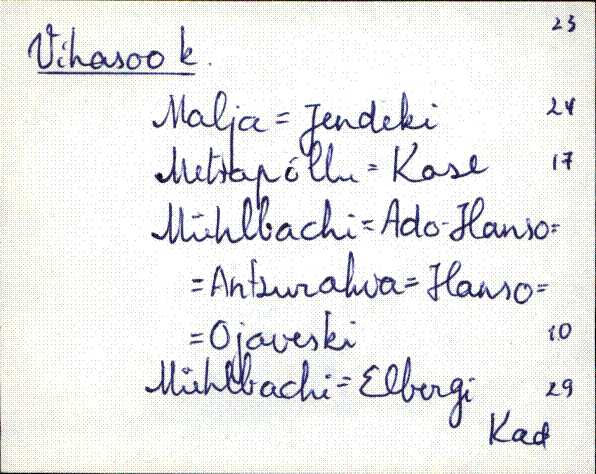 23
Vihasoo k.
Malja = Jendeki 24
Metsapõllu = Kase 17
Mühlbachi = Ado-Hanso =
= Antsurahva = Hanso =
= Ojaveski 10
Mühlbachi = Elbergi 29
Kad